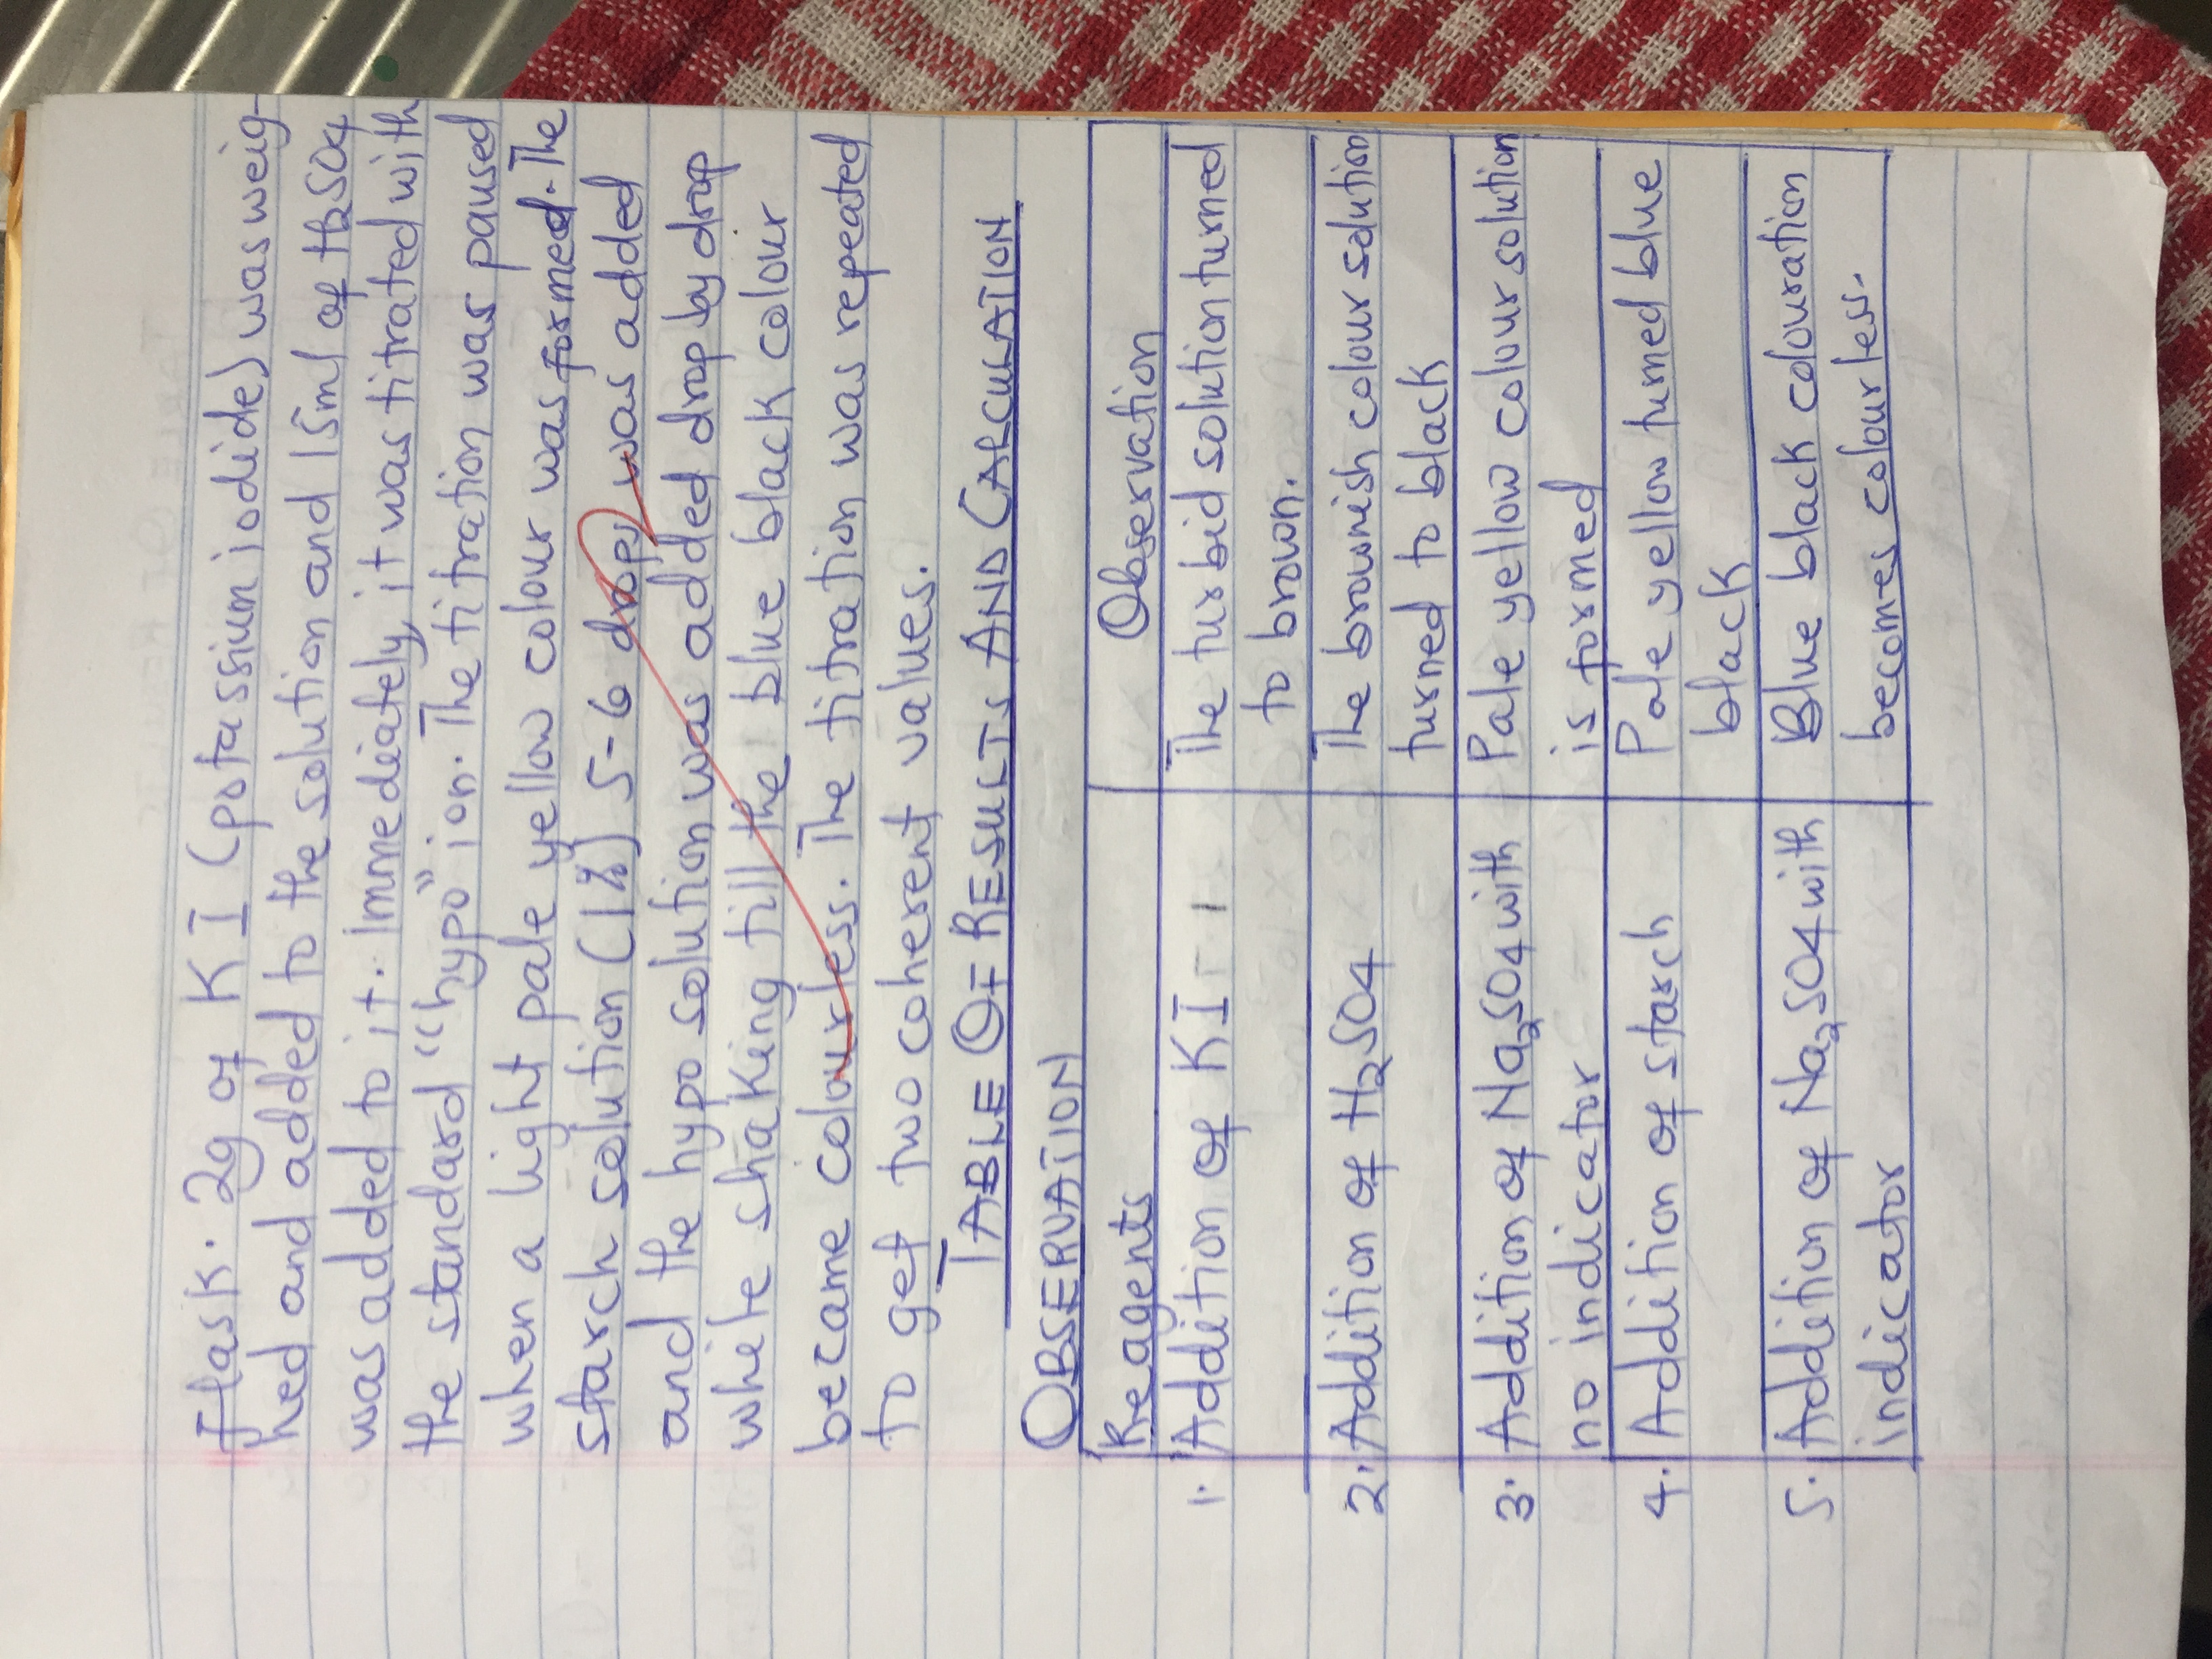 flask. 2g of KI (potassium iodide) was weig-
hed and added to the solution and 15ml of H2SO4
was added to it. Immediately, it was titrated with
the standard "hypo" ion. The titration was paused
when a light pale yellow colour was formed. The
starch solution (1%) 5-6 drops was added
and the hypo solution was added drop by drop
while shaking till the blue black colour
became colourless. The titration was repeated
to get two coherent values.
TABLE OF RESULTS AND CALCULATION
OBSERVATION
Reagents Observation
1. Addition of KI - 1 The turbid solution turned
to brown.
2. Addition of H2SO4 The brownish colour solution
turned to black
3. Addition of Na2SO4 with Pale yellow colour solution
no indicator is formed
4. Addition of starch Pale yellow turned blue
black
5. Addition of Na2SO4 with Blue black colouration
indicator becomes colourless.